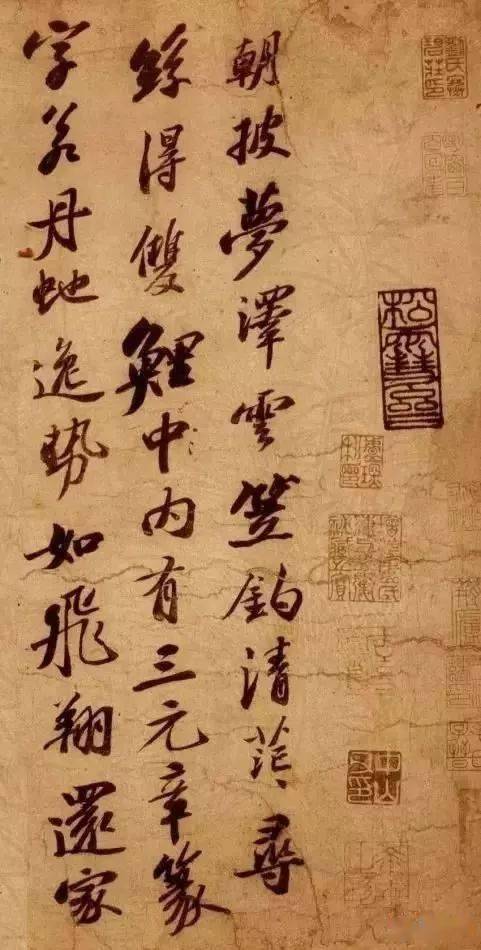 劉氏寒
碧莊印
朝披夢澤雲笠釣清茫〻尋
絲得雙鯉中內有三元章篆
字若丹虵逸勢如飛翔還家